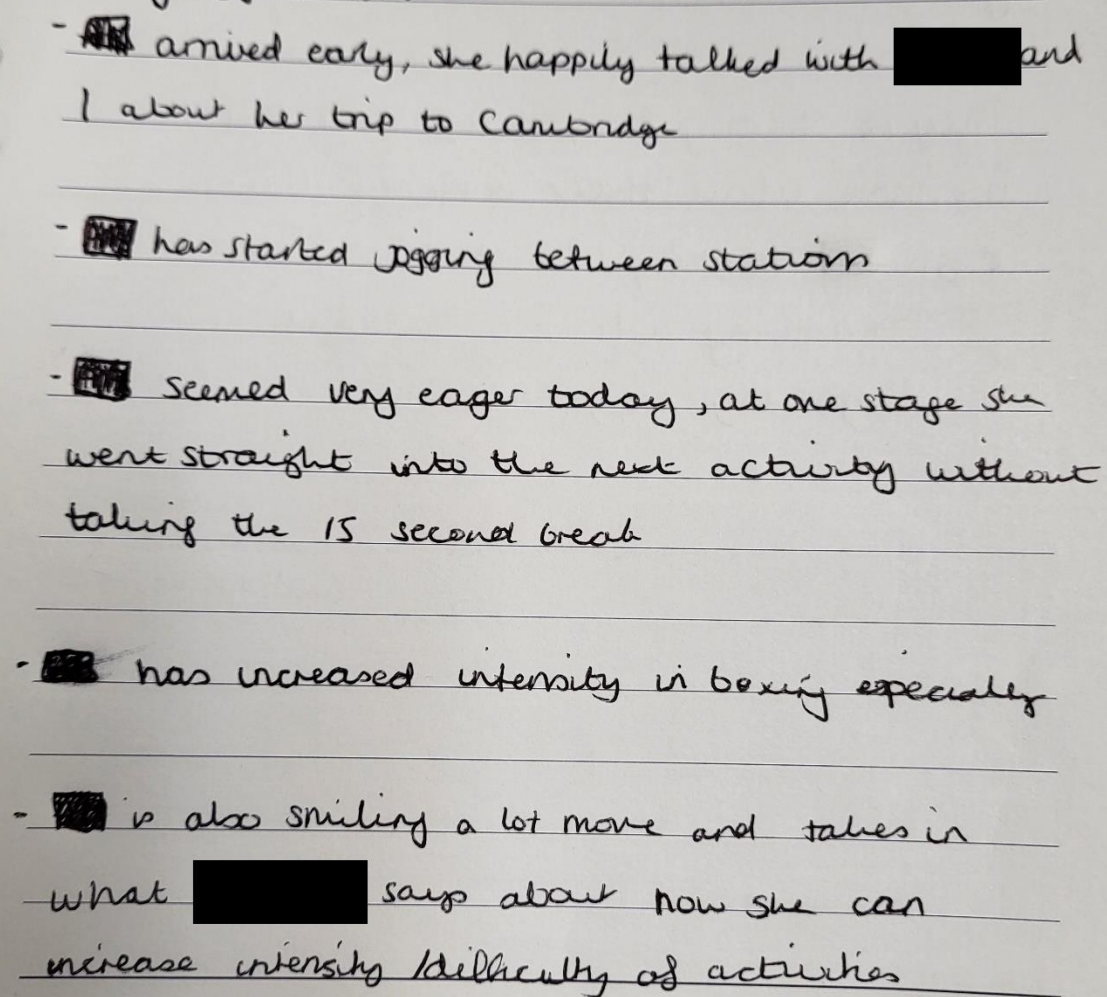 - arrived early, she happily talked with and
I about her trip to Cambridge
- has started jogging between stations
- seemed very eager today, at one stage she
went straight into the next activity without
taking the 15 second break
- has increased intensity in boxing especially
- is also smiling a lot more and takes in
what says about how she can
increase intensity/difficulty of activities